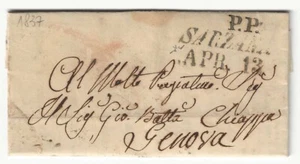 1837
P.P.
SARZANA
APR. 12
Al Molto Pregialmo Sig
Il Sig Gio Batta Chiappa
Genova